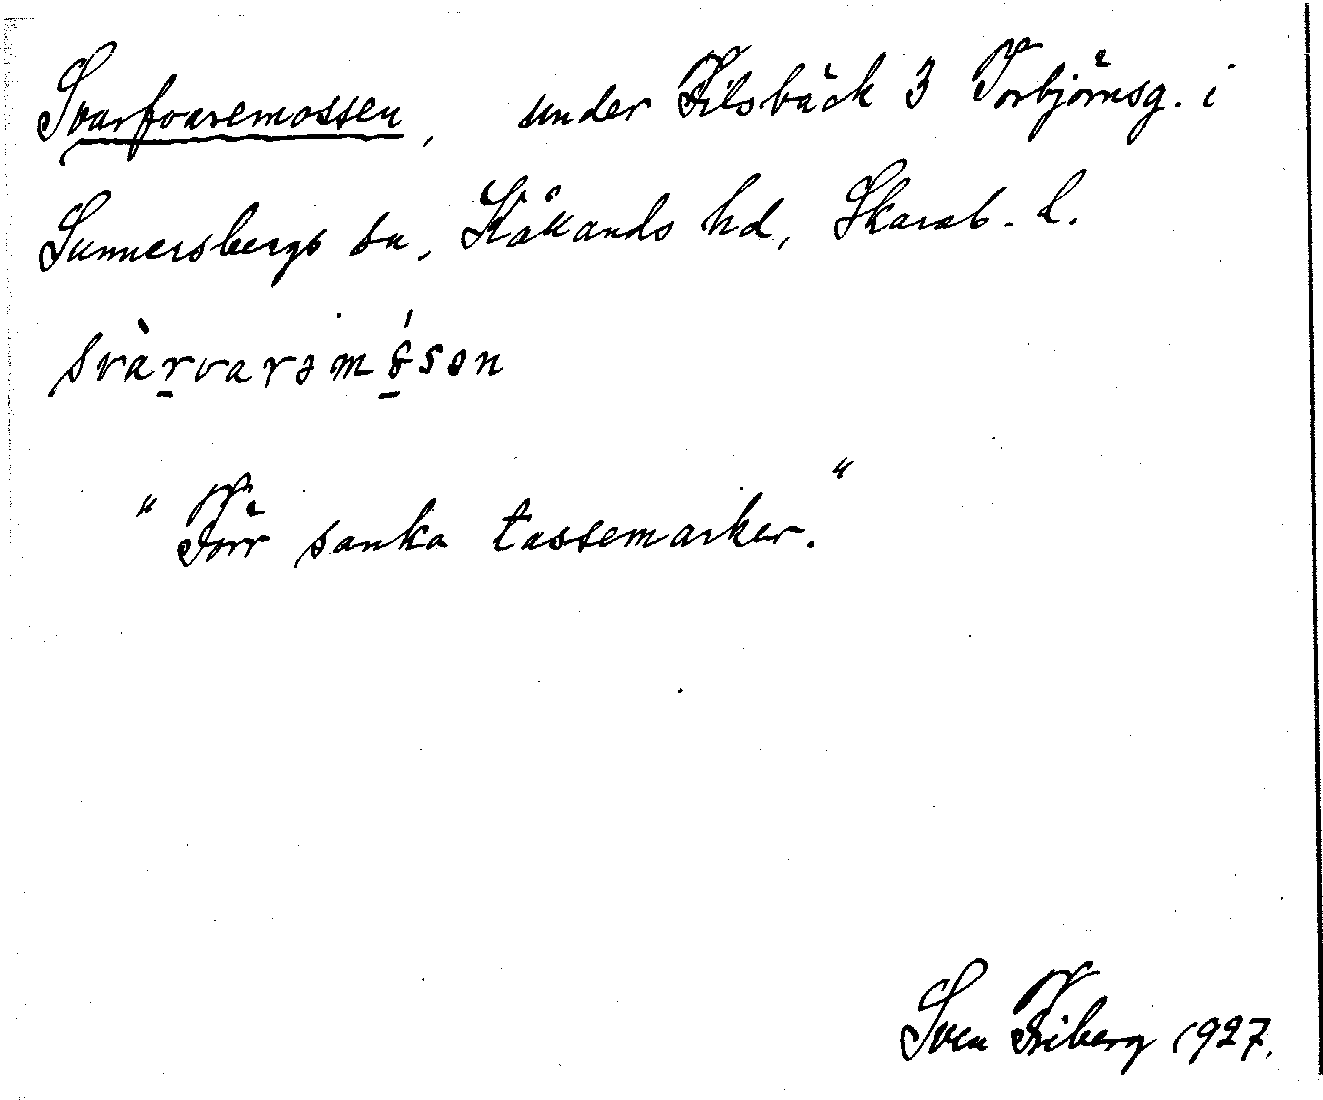 Svarfvaremossen, under Filsbäck 3 Torbjörnsg. i
Sunnersbergs sn, Kållands hd, Skarab. l.
svàrvarəmósən
"Förr sanka tassemarker."
Sven Friberg 1927.